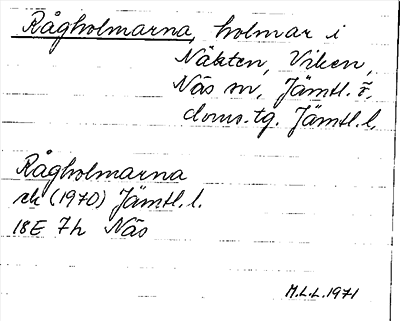 Rågholmarna, holmar i
Näkten, Viken,
Näs sn, Jämtl. ö.
doms.tg. Jämtl. l.
Rågholmarna
ek (1970) Jämtl. l.
18E 7h Näs
M.L.L. 1971